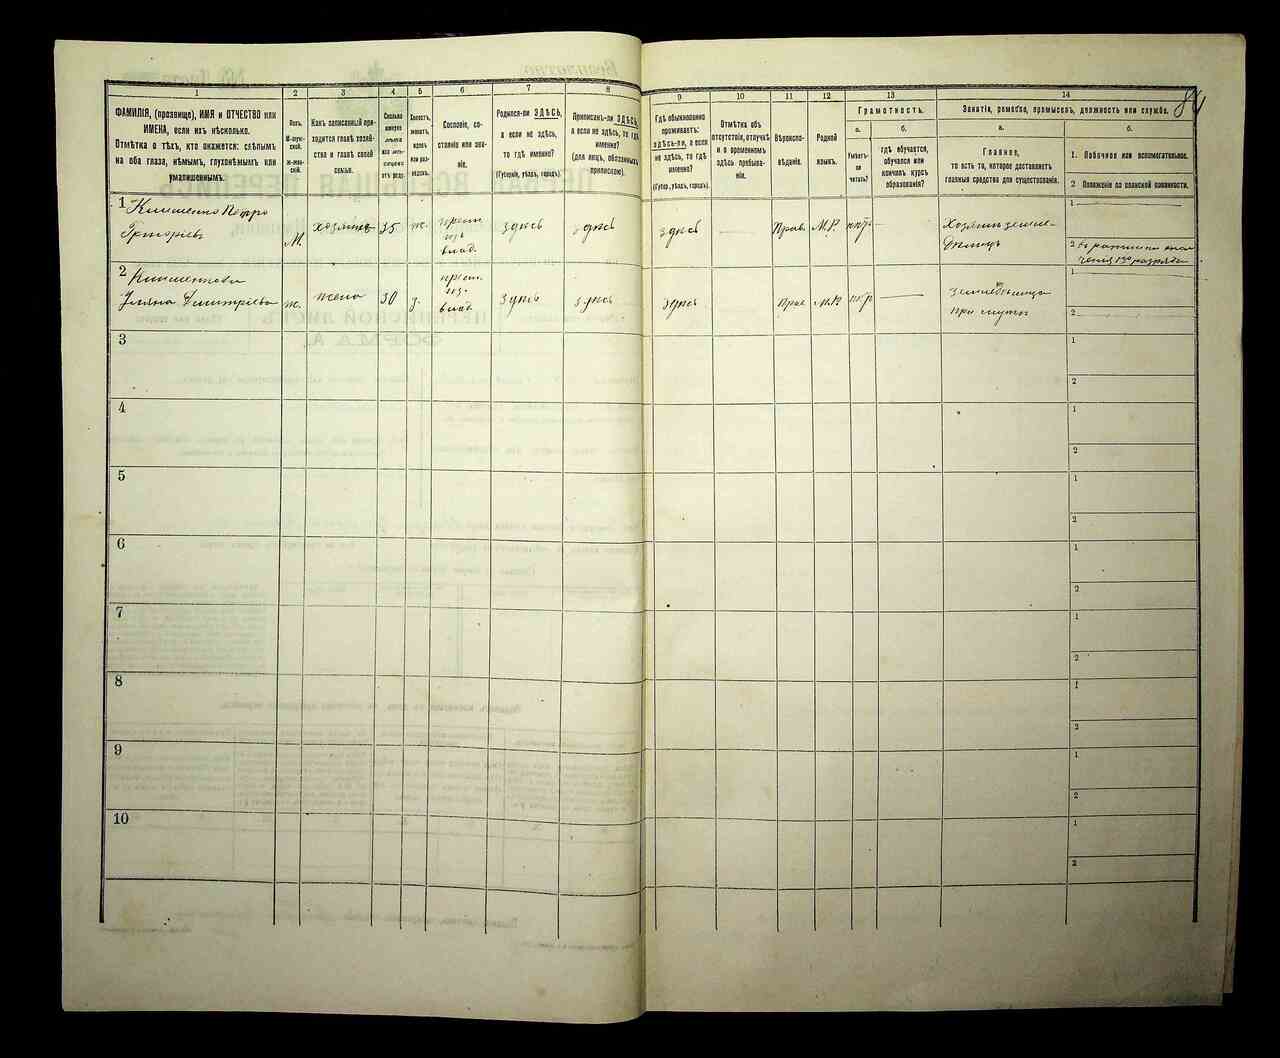 84
1
2
3
4
5
6
7
8
9
10
11
12
13
14
ФАМИЛІЯ, (прозвище), ИМЯ и ОТЧЕСТВО или
ИМЕНА, если ихъ нѣсколько.
Отмѣтка о тѣхъ, кто окажется: слѣпымъ
на оба глаза, нѣмымъ, глухонѣмымъ или
умалишеннымъ.
Полъ.
М-муж-
ской.
Ж-жен-
скій.
Какъ записанный при-
ходится главѣ хозяй-
ства и главѣ своей
семьи.
Сколько
минуло
лѣтъ
или мѣ-
сяцевъ
отъ роду.
Холостъ,
женатъ,
вдовъ
или раз-
веденъ.
Сословіе, со-
стояніе или зва-
ніе.
Родился-ли ЗДѢСЬ,
а если не здѣсь,
то гдѣ именно?
(Губернія, уѣздъ, городъ).
Приписанъ-ли ЗДѢСЬ,
а если не здѣсь, то гдѣ
именно?
(для лицъ, обязанныхъ
припискою).
Гдѣ обыкновенно
проживаетъ:
здѣсь-ли, а если
не здѣсь, то гдѣ
именно?
(Губерн., уѣздъ, городъ).
Отмѣтка объ
отсутствіи, отлучкѣ
и о временномъ
здѣсь пребыва-
ніи.
Вѣроиспо-
вѣданіе.
Родной
языкъ.
Грамотность.
а.
Умѣетъ-
ли
читать?
б.
гдѣ обучается,
обучался или
кончилъ курсъ
образованія?
Занятія, ремесло, промыселъ, должность или служба.
а.
Главное,
то есть то, которое доставляетъ
главныя средства для существованія.
б.
1. Побочное или вспомогательное.
2 Положеніе по воинской повинности.
1 Клименко Петро
Григоріевъ
М.
хозяинъ
35
ж.
здѣсь
здѣсь
здѣсь
Прав.
М.Р.
Хозяинъ земле-
дѣлецъ
1
2
2
Дмитріева
ж.
жена
30
з.
здѣсь
здѣсь
здѣсь
Прав
М.Р
при мужѣ
1
2
3
1
2
4
1
2
5
1
2
6
1
2
7
1
2
8
1
2
9
1
2
10
1
2